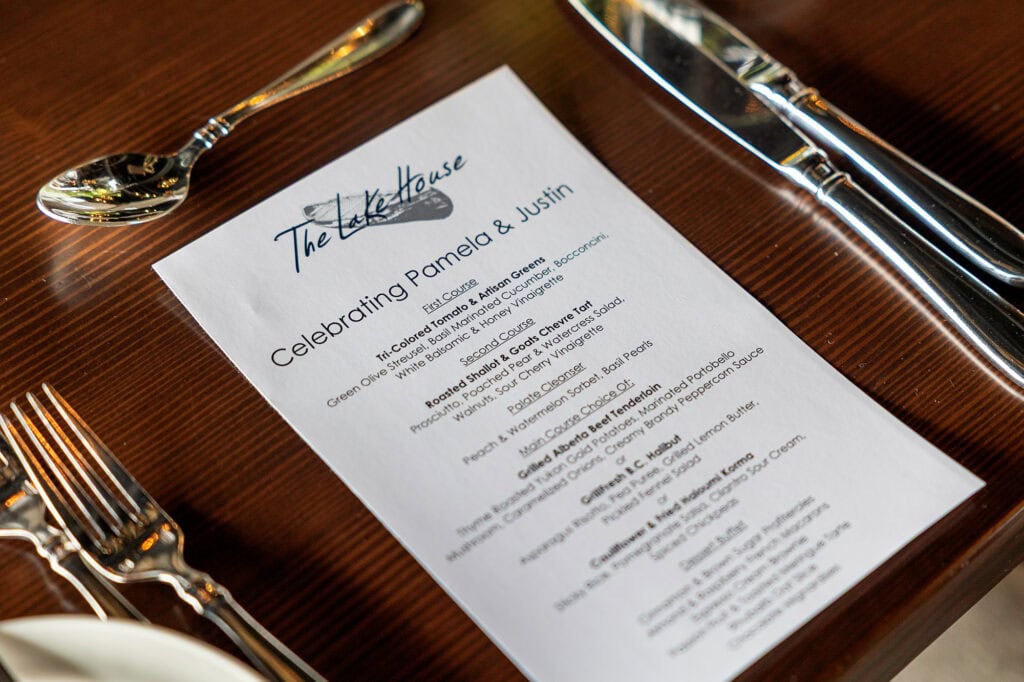 The Lake House
Celebrating Pamela & Justin
First Course
Tri-Colored Tomato & Artisan Greens
Green Olive Streusel, Basil Marinated Cucumber, Bocconcini,
White Balsamic & Honey Vinaigrette
Second Course
Roasted Shallot & Goats Chevre Tart
Prosciutto, Poached Pear & Watercress Salad,
Walnuts, Sour Cherry Vinaigrette
Palate Cleanser
Peach & Watermelon Sorbet, Basil Pearls
Main Course Choice Of:
Grilled Alberta Beef Tenderloin
Thyme Roasted Yukon Gold Potatoes, Marinated Portobello
Mushroom, Caramelized Onions, Creamy Brandy Peppercorn Sauce
or
Grillfresh B.C. Halibut
Asparagus Risotto, Pea Puree, Grilled Lemon Butter,
Pickled Fennel Salad
or
Cauliflower & Fried Haloumi Korma
Sticky Rice, Pomegranate Salsa, Cilantro Sour Cream,
Spiced Chickpeas
Dessert Buffet
Cinnamon & Brown Sugar Profiteroles
Almond & Raspberry French Macarons
Baileys Cream Brownie
Passion Fruit & Toasted Meringue Tarte
Rhubarb Oat Slice